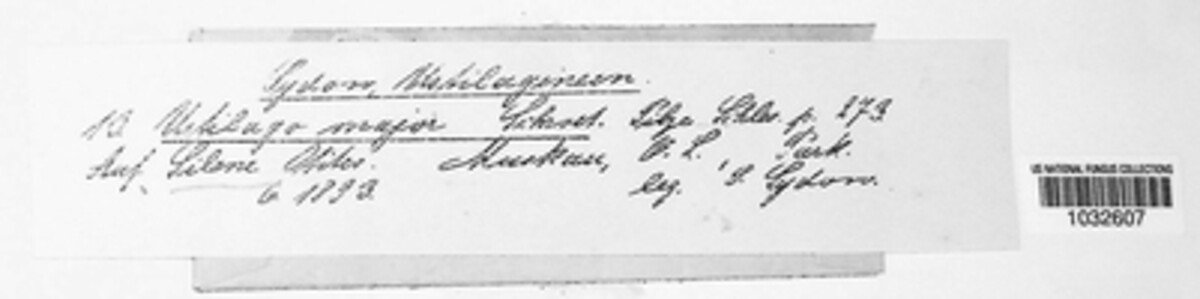 Sydow, Ustilagineen.
13. Ustilago major Schroet. Pilze Schles. p. 273
Auf Silene Otites. Muskau, O. L. Park.
6. 1893. leg. P. Sydow.
US NATIONAL FUNGUS COLLECTIONS
1032607